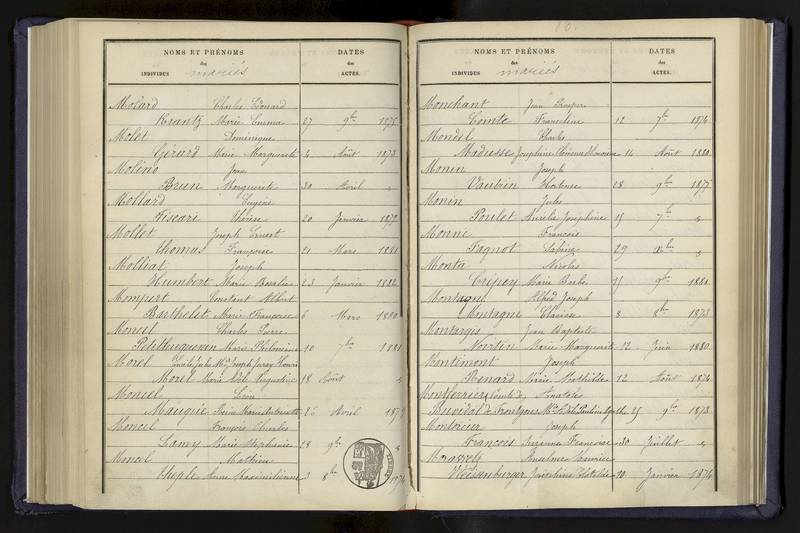 NOMS ET PRÉNOMS
DATES
des
des
INDIVIDUS mariés
ACTES.
Molard Charles Edouard
Krantz Marie Emma 27 9bre 1875
Molet Dominique
Gérard Marie Marguerite 4 Août 1873
Molino Jean
Brun Marguerite 30 Avril "
Mollard Eugène
Fiscari 20 Janvier 1879
Mollet Joseph Ernest
Thomas Françoise 21 Mars 1881
Molliat Joseph
Humbert Marie Rosalie 23 Janvier 1882
Mompert Constant Albert
Barthélet Marie Françoise 6 Mars 1880
Moncel Charles Pierre
Petithuguenin Marie Philomène 10 7bre 1881
Morel Joseph Henri
Morel Marie 18 Août "
Moncel Léon
Maugie Marie Antoinette Avril 1879
Moncel François Charles
Lamy Marie Stéphanie 28 9bre "
Moncel Mathieu
Anne Maximilienne 3 8bre 1874
80.
NOMS ET PRÉNOMS
DATES
des
des
INDIVIDUS mariés
ACTES.
Monchant Jean Prosper
Comte Francoline 12 7bre 1876
Mondel Charles
Madiesse Joséphine Honorine 14 Août 1880
Monin Joseph
Vaubin Hortense 28 9bre 1875
Monin Jules
Poulet Aurélie Joséphine 15 7bre "
Monne François
Fagnot Sabine 29 Xbre "
Monta Nicolas
Crépey Marie Barbe 15 9bre 1881
Montagne Alfred Joseph
Montagne Clarisse 8 8bre 1873
Montargis Jean Baptiste
Nointin Marie Marguerite 12 Juin 1880
Montimont Joseph
Renard Marie Mathilde 12 Août 1876
Montferrier Comte de, Anatole
9bre 1873
Joseph
François Suzanne Françoise 30 Juillet "
Anselme Maurice
Weissenburger Joséphine Clotilde 20 Janvier 1874